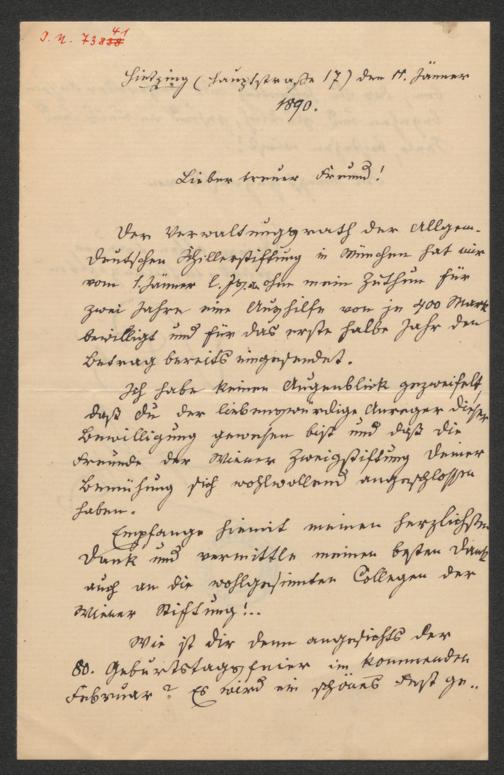 J. N. 73841
Hietzing (Hauptstraße 17) den 11. Jänner
1890.
Lieber treuer Freund!
Der Verwaltungsrath der Allgem.
Deutschen Schillerstiftung in München hat mir
vom 1. Jänner l. J. an ohne mein Zuthun für
zwei Jahre eine Aushilfe von je 400 Mark
bewilligt und für das erste halbe Jahr den
Betrag bereits eingesendet.
Ich habe keinen Augenblick gezweifelt,
daß du der liebenswürdige Anreger dieser
Bewilligung gewesen bist und daß die
Freunde der Wiener Zweigstiftung Deiner
Bemühung sich wohlwollend angeschlossen
haben.
Empfange hiemit meinen herzlichsten
Dank und vermittle meinen besten Dank
auch an die wohlgesinnten Collegen der
Wiener Stiftung!..
Wie ist dir denn angesichts der
80. Geburtstagsfeier im kommenden
Februar? Es wird ein schönes Fest ge..